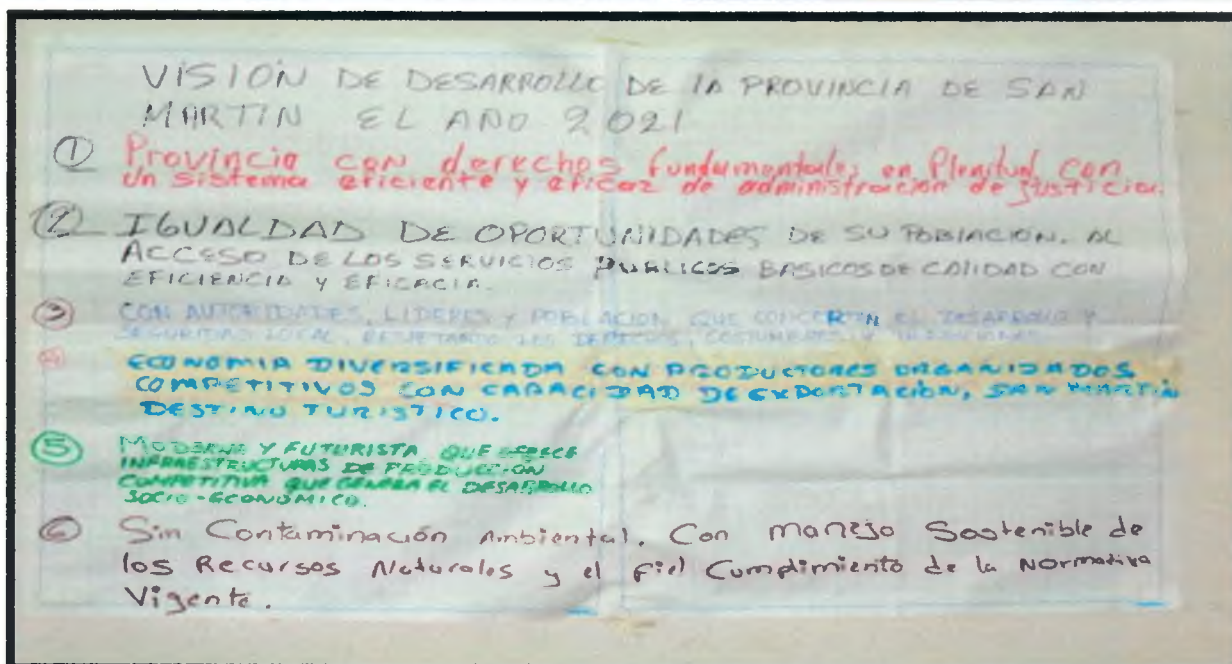 VISION DE DESARROLLO DE LA PROVINCIA DE SAN
MARTIN EL AÑO 2021
① Provincia con derechos fundamentales en Plenitud con
un sistema eficiente y eficaz de administración de justicia.
② IGUALDAD DE OPORTUNIDADES DE SU POBLACION. AL
ACCESO DE LOS SERVICIOS PUBLICOS BASICOS DE CALIDAD CON
EFICIENCIA Y EFICACIA.
③ CON AUTORIDADES, LIDERES Y POBLACION QUE CONCERTEN EL DESARROLLO Y
SEGURIDAD LOCAL, RESPETANDO LOS DERECHOS, COSTUMBRES Y TRADICIONES
④ ECONOMIA DIVERSIFICADA CON PRODUCTORES ORGANIZADOS
COMPETITIVOS CON CAPACIDAD DE EXPORTACIÓN, SAN MARTIN
DESTINO TURISTICO.
⑤ MODERNA Y FUTURISTA QUE OFRECE
INFRAESTRUCTURAS DE PRODUCCION
COMPETITIVA QUE GENERA EL DESARROLLO
SOCIO-ECONOMICO.
⑥ Sin Contaminación Ambiental. Con manejo Sostenible de
los Recursos Naturales y el fiel Cumplimiento de la Normativa
Vigente.